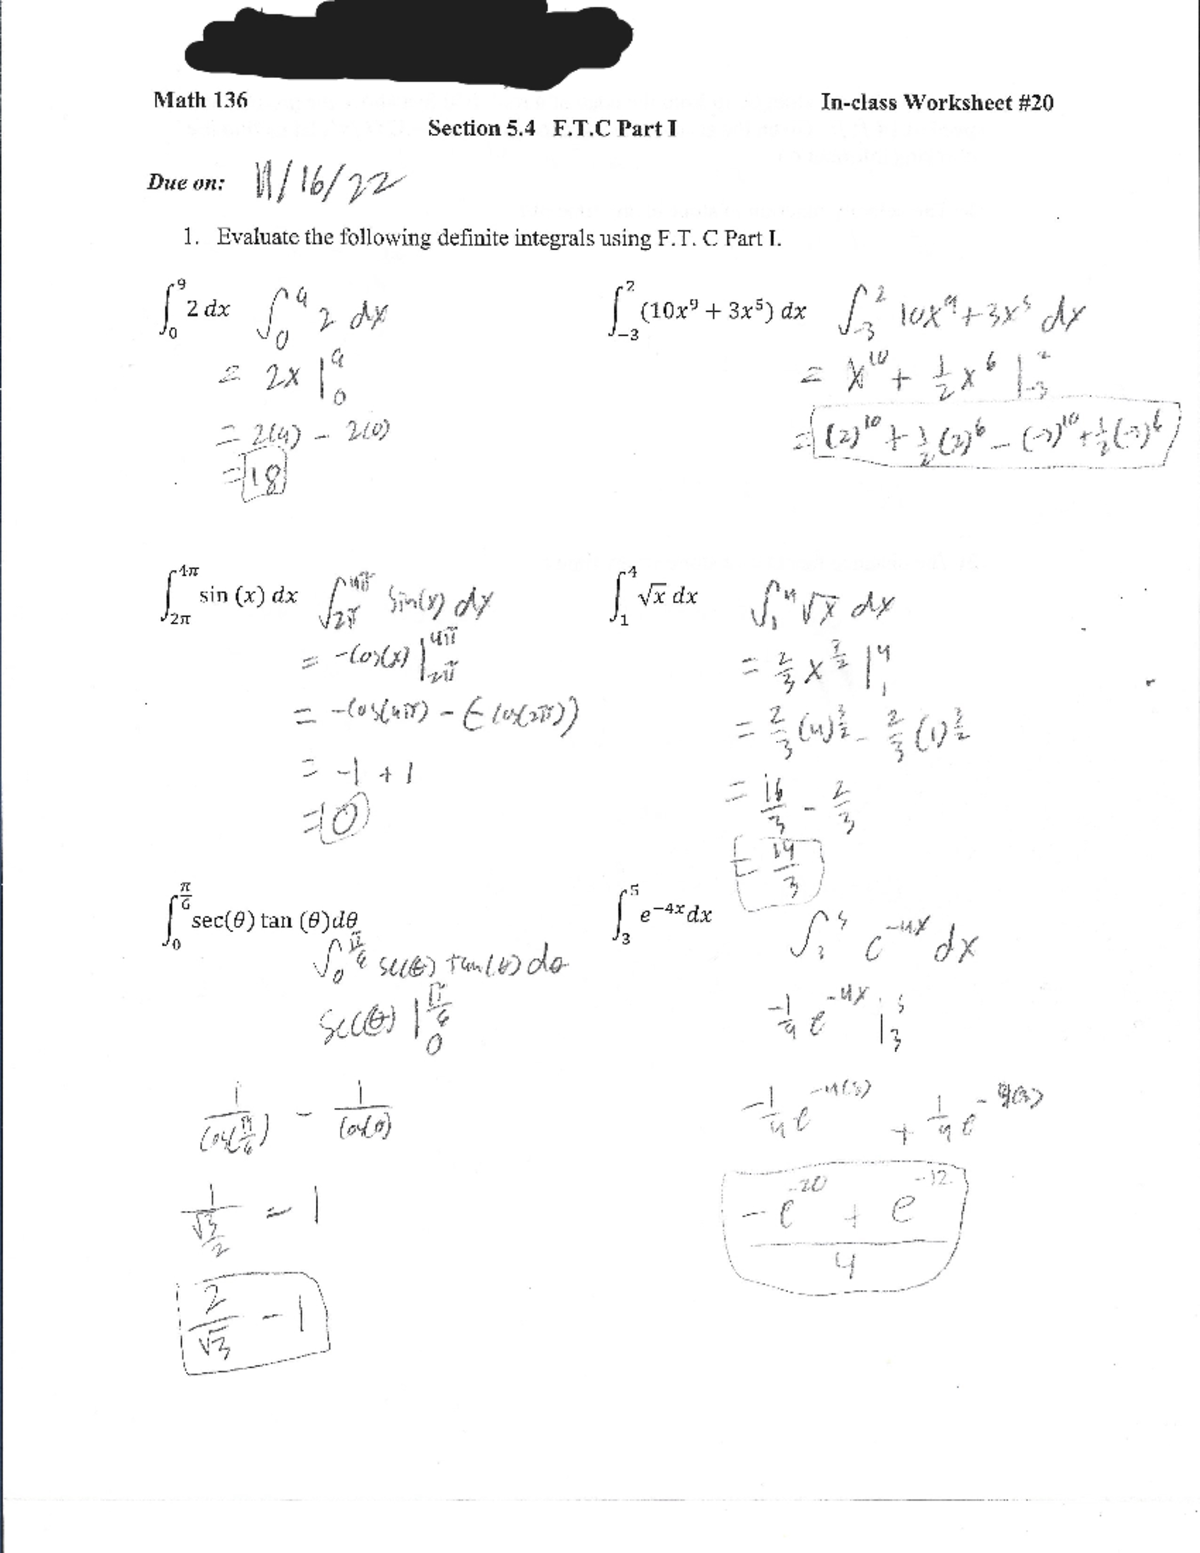 Math 136
In-class Worksheet #20
Section 5.4 F.T.C Part I
Due on: 11/16/22
1. Evaluate the following definite integrals using F.T. C Part I.
∫₀⁹ 2 dx
∫₀⁹ 2 dx
= 2x |₀⁹
= 2(9) - 2(0)
= 18
∫₋₃² (10x⁹ + 3x⁵) dx
∫₋₃² 10x⁹ + 3x⁵ dx
= x¹⁰ + 1/2 x⁶ |₋₃²
= (2)¹⁰ + 1/2 (2)⁶ - (-3)¹⁰ + 1/2 (-3)⁶
∫_{2π}^{4π} sin (x) dx
∫_{2π}^{4π} sin(x) dx
= -cos(x) |_{2π}^{4π}
= -cos(4π) - (-cos(2π))
= -1 + 1
= 0
∫₁⁴ √x dx
∫₁⁴ √x dx
= 2/3 x^{3/2} |₁⁴
= 2/3 (4)^{3/2} - 2/3 (1)^{3/2}
= 16/3 - 2/3
= 14/3
∫₀^{π/6} sec(θ) tan (θ)dθ
∫₀^{π/6} sec(θ) tan(θ) dθ
sec(θ) |₀^{π/6}
1/cos(π/6) - 1/cos(0)
1/(√3/2) - 1
2/√3 - 1
∫₃⁵ e^{-4x} dx
∫₃⁵ e^{-4x} dx
-1/4 e^{-4x} |₃⁵
-1/4 e^{-4(5)} + 1/4 e^{-4(3)}
(-e^{-20} + e^{-12})/4